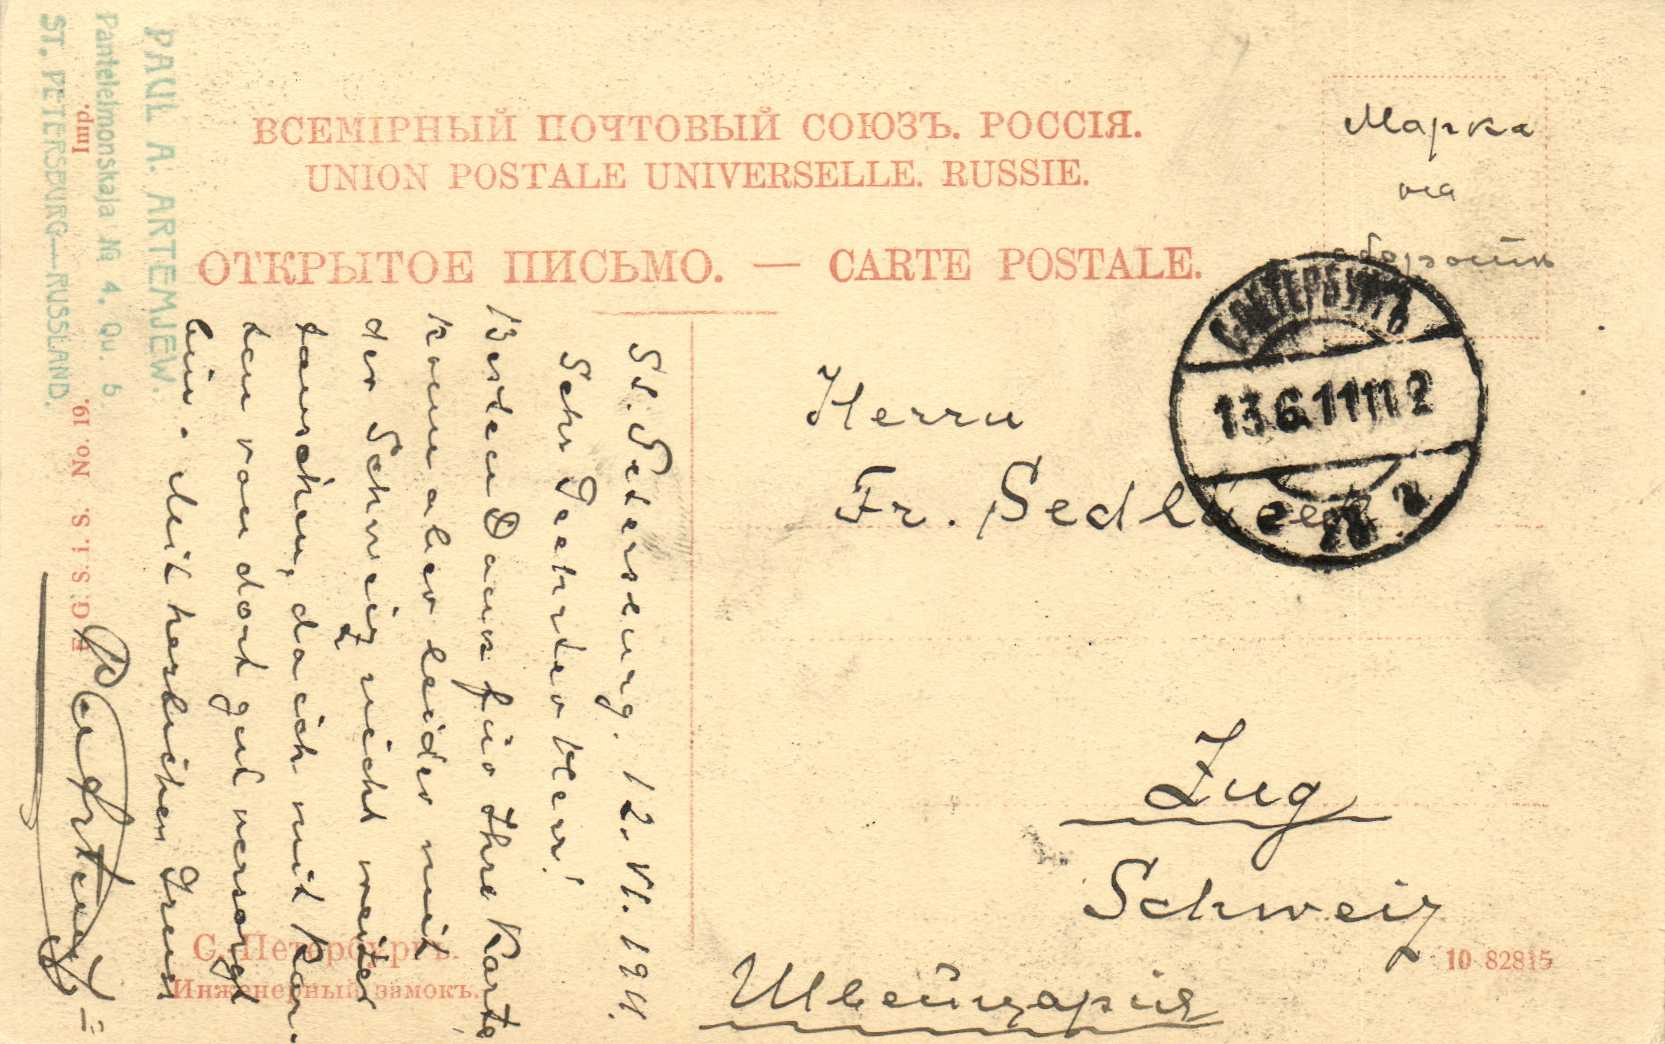 PAUL A. ARTEMJEW.
Panteleimonskaja № 4. Qu. 5
ST. PETERSBURG—RUSSLAND.
ВСЕМІРНЫЙ ПОЧТОВЫЙ СОЮЗЪ. РОССІЯ.
UNION POSTALE UNIVERSELLE. RUSSIE.
ОТКРЫТОЕ ПИСЬМО. — CARTE POSTALE.
Марка
на
оборотѣ
С.ПЕТЕРБУРГЪ
13.6.11 11 2
28
Herrn
Fr. Sedláček
Zug
Schweiz
Швейцарія
St. Petersburg. 12. VI. 1911.
Sehr Geehrter Herr!
Besten Dank für Ihre Karte
kann aber leider mit
der Schweiz nicht weiter
tauschen, da ich mit Kar-
ten von dort gut versorgt
bin. Mit herzlichen Gruss
Imp.
E. G. S. i. S. No. 19.
С. Петербургъ.
Инженерный замокъ.
10 82815